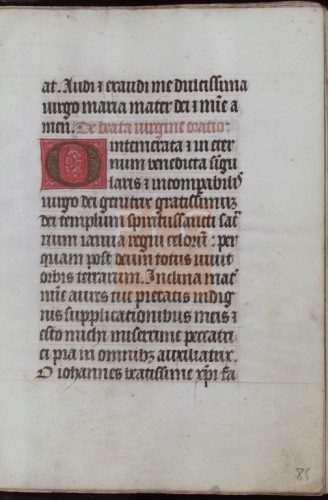 at. Audi ⁊ exaudi me dulcissima
uirgo maria mater dei ⁊ mīe a
men. De beata uirgine oratio:
O intemerata ⁊ in eter
num benedicta sīgu
laris ⁊ incompabilis
uirgo dei genitrix gratissimūqꝫ
dei templum spiritussancti sac̄
rium ianua regni celorum: per
quam post deum totus uiuit
orbis terrarum. Inclina mat̄
mīe aures tue pietatis indig
nis supplicationibus meis ⁊
esto michi miserrime peccatri
ci pia in omnibꝫ auxiliatrix.
O iohannes beatissime xp̄i fa
85